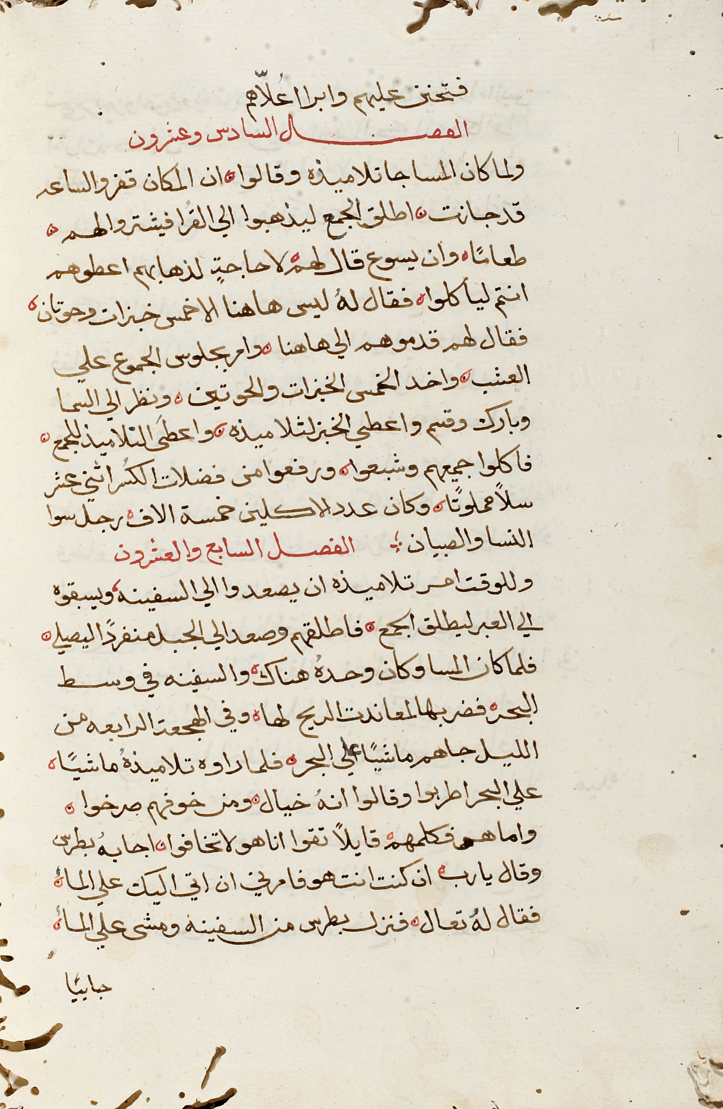 فتحنن عليهم وابرا اعلاهم
الفصــــل السادس وعشرون
ولما كان المسا جا تلاميذه وقالوا ان المكان قفر والساعه
قد جازت اطلق الجمع ليذهبوا الي القرا فيشتروا لهم
طعامًا وان يسوع قال لهم لا حاجةٍ لذهابهم اعطوهم
انتم لياكلوا فقال لهُ ليس هاهنا الا خمس خبزات وحوتان
فقال لهم قدموهم الي هاهنا وامر بجلوس الجموع علي
العشب واخد الخمس الخبزات والحوتين ونظر الي السما
وبارك وقسم واعطي الخبز لتلاميذه واعطي التلاميذ للجمع
فاكلوا جميعهم وشبعوا ورفعوا من فضلات الكسُر اثني عشر
سلاً مملوتًا وكان عدد الاكلين خمسة الاف رجل سوا
النسا والصبيان الفصل السابع والعشرون
وللوقت امر تلاميذه ان يصعدوا الي السفينه ويسبقوه
الي العبر ليطلق الجمع فاطلقهم وصعد الي الجبل منفردًا ليصلي
فلما كان المسا وكان وحدهُ هناك والسفينه في وسط
البحر فضربها لمعاندت الريح لها وفي الهجعة الرابعه من
الليل جاهم ماشيًا علي البحر فلما راوه تلاميذهُ ماشيًا
علي البحر اطربوا وقالوا انهُ خيال ومن خوفهم صرخوا
واما هم فكلمهم قايلاً تقوا انا هو لا تخافوا اجابهُ بطرس
وقال يارب ان كنت انت هو فامرني ان اتي اليك علي الماءُ
فقال لهُ تعال فنزل بطرس من السفينه ومشي علي الماءُ
جاييًا